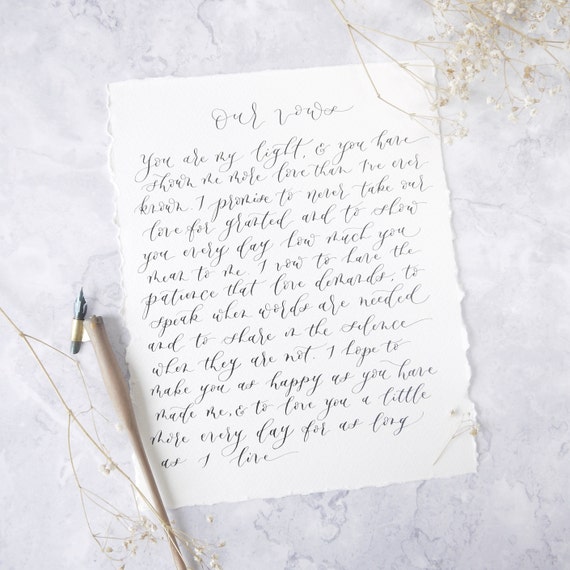 our vows
You are my light, & you have
shown me more love than I've ever
known. I promise to never take our
love for granted and to show
you every day how much you
mean to me. I vow to have the
patience that love demands, to
speak when words are needed
and to share in the silence
when they are not. I hope to
make you as happy as you have
made me, & to love you a little
more every day for as long
as I live